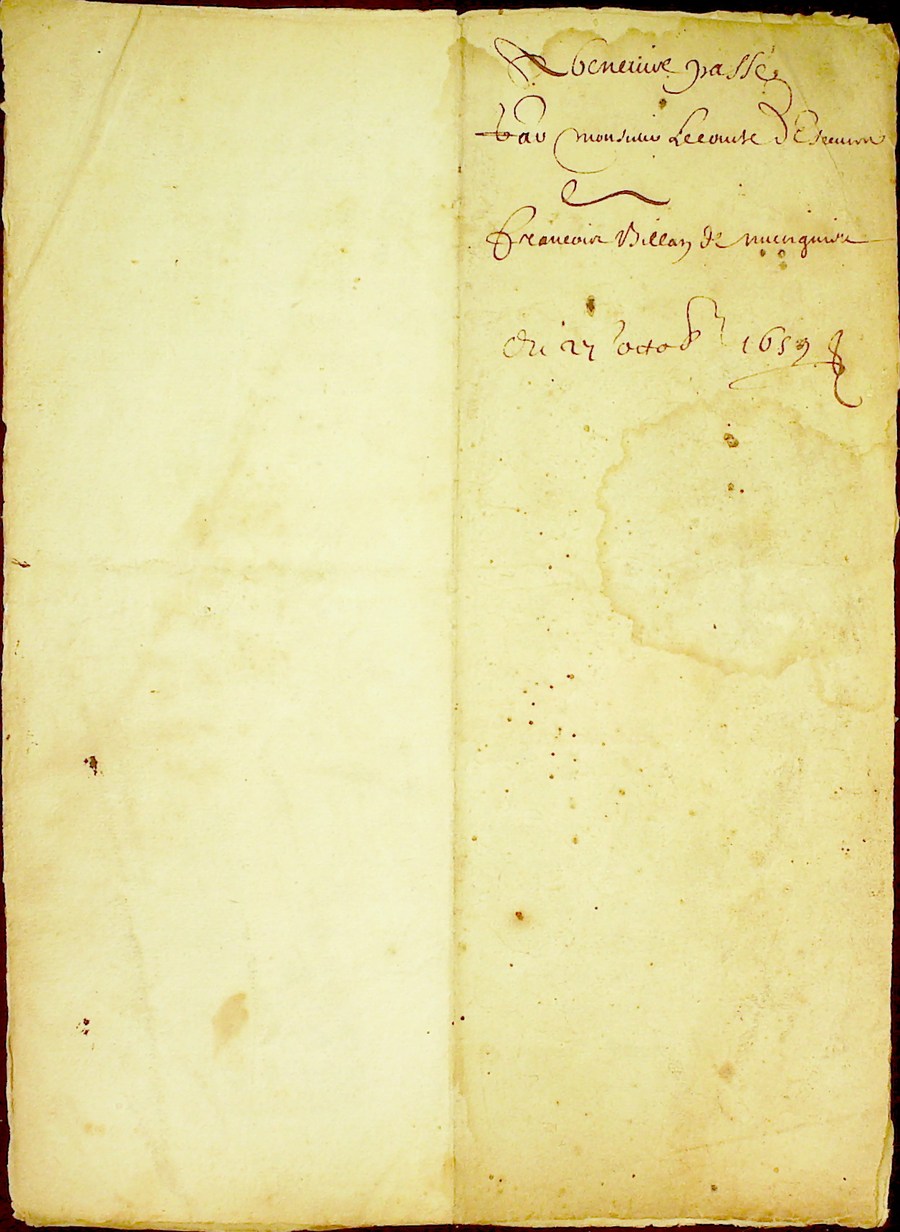 Abenevise passé
par monsieur Lecomte
A
francois Billan de
du 27 octob^r 1659